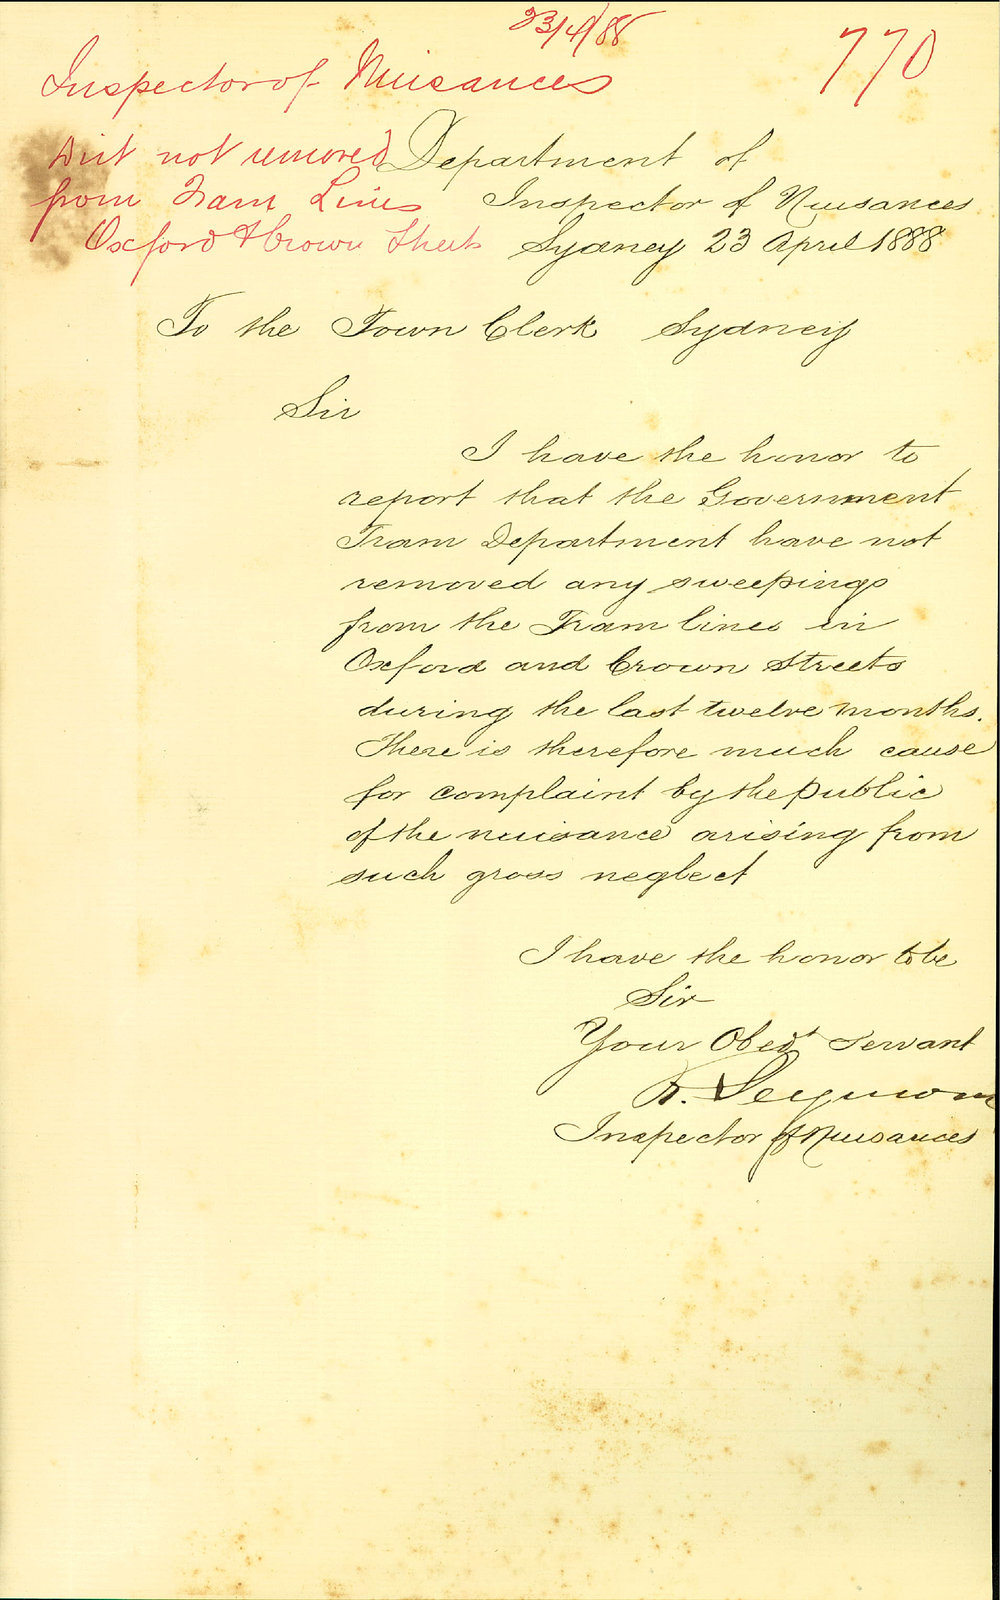 23/4/88
770
Inspector of Nuisances
Dirt not removed
from Tram Lines
Oxford & Crown Streets
Department of
Inspector of Nuisances
Sydney 23 April 1888
To the Town Clerk Sydney
Sir
I have the honor to
report that the Government
Tram Department have not
removed any sweepings
from the Tram lines in
Oxford and Crown Streets
during the last twelve months.
There is therefore much cause
for complaint by the public
of the nuisance arising from
such gross neglect
I have the honor to be
Sir
Your Obedt servant
R. Seymour
Inspector of Nuisances